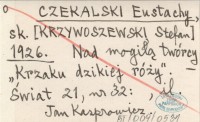 o CZEKALSKI Eustachy,
sk. [KRZYWOSZEWSKI Stefan]
1926. Nad mogiłą twórcy
„Krzaku dzikiej róży".
Świat 21, nr 32: il.
Jan Kasprowicz.